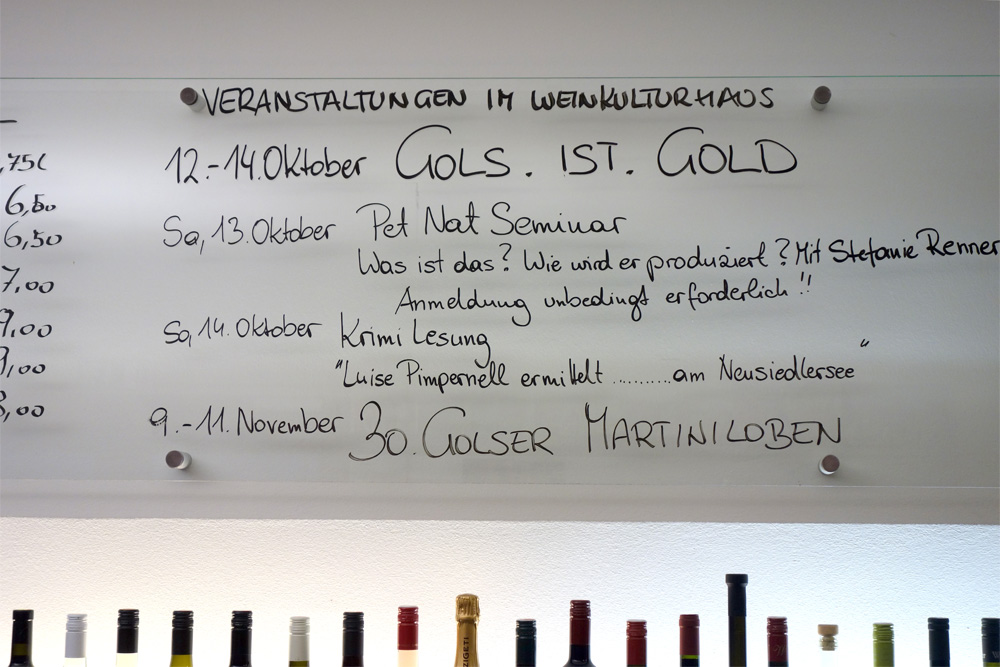 VERANSTALTUNGEN IM WEINKULTURHAUS
12.-14.Oktober GOLS. IST. GOLD
Sa, 13. Oktober Pet Nat Seminar
Was ist das? Wie wird er produziert? Mit Stefanie Renner
Anmeldung unbedingt erforderlich!!
So, 14. Oktober Krimi Lesung
"Luise Pimpernell ermittelt ..........am Neusiedlersee"
9.-11. November 30. GOLSER MARTINILOBEN
,75l
6,50
6,50
7,00
9,00
9,00
8,00
ZIGETI